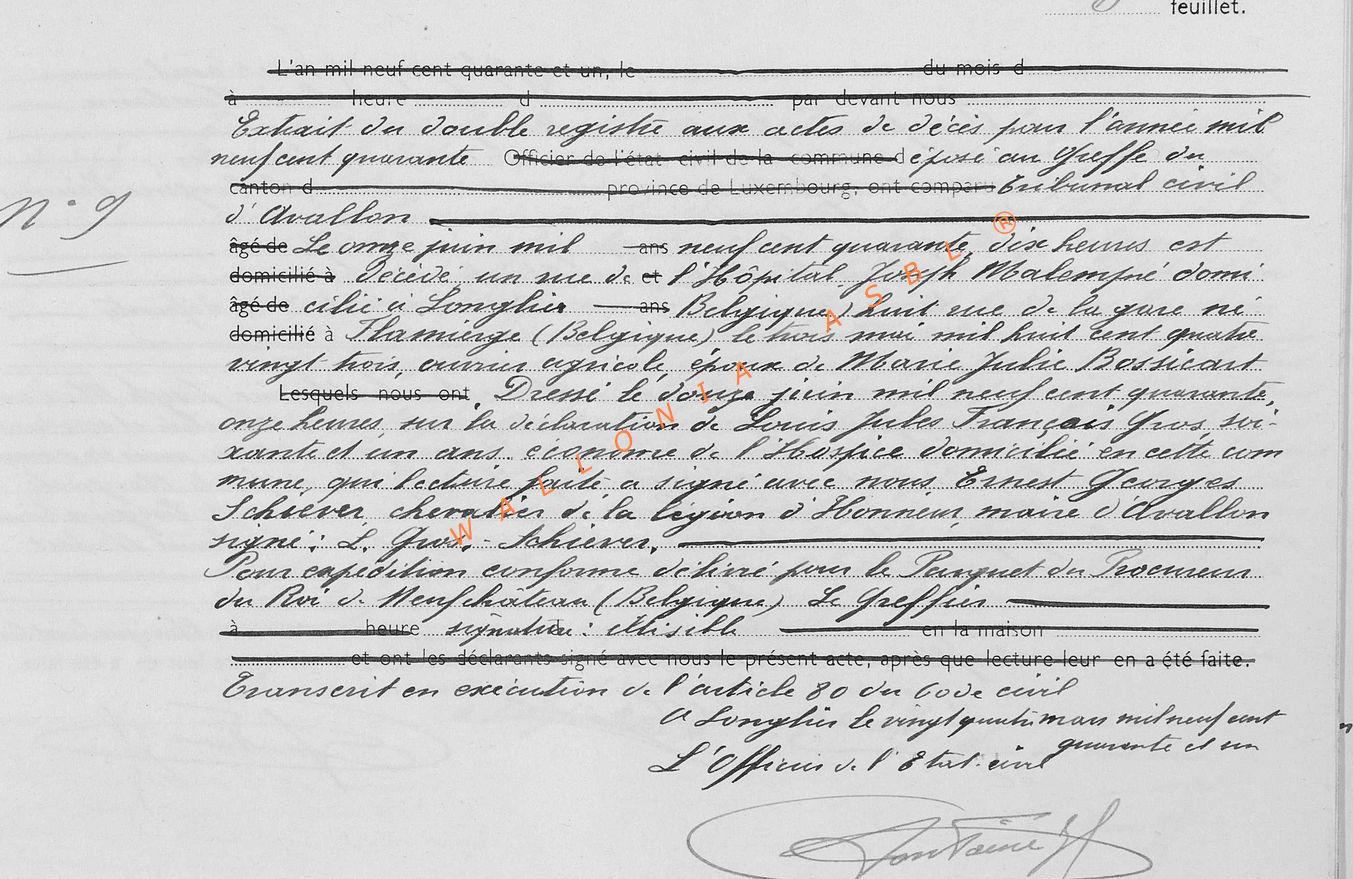 feuillet.
L'an mil neuf cent quarante et un, le du mois d
à heure d par devant nous
Extrait du double registre aux actes de décès pour l'année mil
neuf cent quarante Officier de l'état civil de la commune déposé au Greffe du
canton d province de Luxembourg, ont comparu Tribunal civil
N° 9
d'Avallon
âgé de Le onze juin mil ans neuf cent quarante, dix heures est
domicilié à Décédé, un rue de et l'Hôpital Joseph Malempré domi
âgé de cilié à Longlier ans Belgique) huit rue de la gare né
domicilié à Flamierge (Belgique) le trois mai mil huit cent quatre
vingt trois, ouvrier agricole, époux de Marie Julie Bossicart
Lesquels nous ont Dressé le douze juin mil neuf cent quarante,
onze heures, sur la déclaration de Louis Jules François Gros, soi-
xante et un ans, économe de l'Hospice domicilié en cette com
mune, qui lecture faite a signé avec nous, Ernest Georges
Schiever, chevalier de la légion d'Honneur, maire d'Avallon
signé: L. Gros. - Schiever.
Pour expédition conforme délivré pour le Parquet du Procureur
du Roi de Neufchâteau (Belgique) Le Greffier
à heure signature: illisible en la maison
et ont les déclarants signé avec nous le présent acte, après que lecture leur en a été faite.
Transcrit en exécution de l'article 80 du Code civil
A Longlier le vingt quatre mars mil neuf cent
quarante et un
L'Officier de l'Etat-civil
WALLONIA ASBL ®